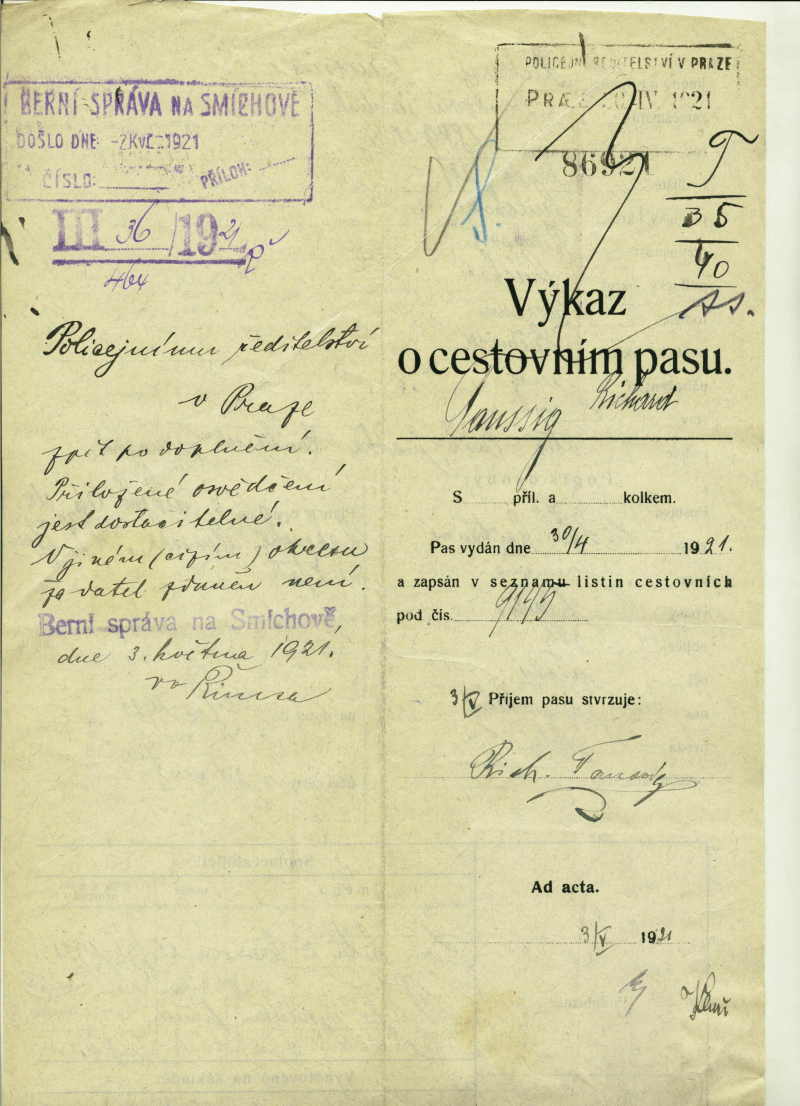 BERNÍ SPRÁVA NA SMÍCHOVĚ
DOŠLO DNE: -2.KVĚ.1921
ČÍSLO: PŘÍLOH:
III 36/1921
Policejnímu ředitelství
v Praze
zpět po doplnění.
Přiložené osvědčení
jest dostačitelné.
V jiném (cizím) okresu
žadatel zdaněn není.
Berní správa na Smíchově,
dne 3. května 1921.
POLICEJNÍ ŘEDITELSTVÍ V PRAZE
PRAHA IV. 1921
86921
T
35
40
ss.
Výkaz
o cestovním pasu.
Taussig Richard
S příl. a kolkem.
Pas vydán dne 30/4 1921.
a zapsán v seznamu listin cestovních
pod čís. 9145
3/V Příjem pasu stvrzuje:
Rich. Taussig
Ad acta.
3/V 1921